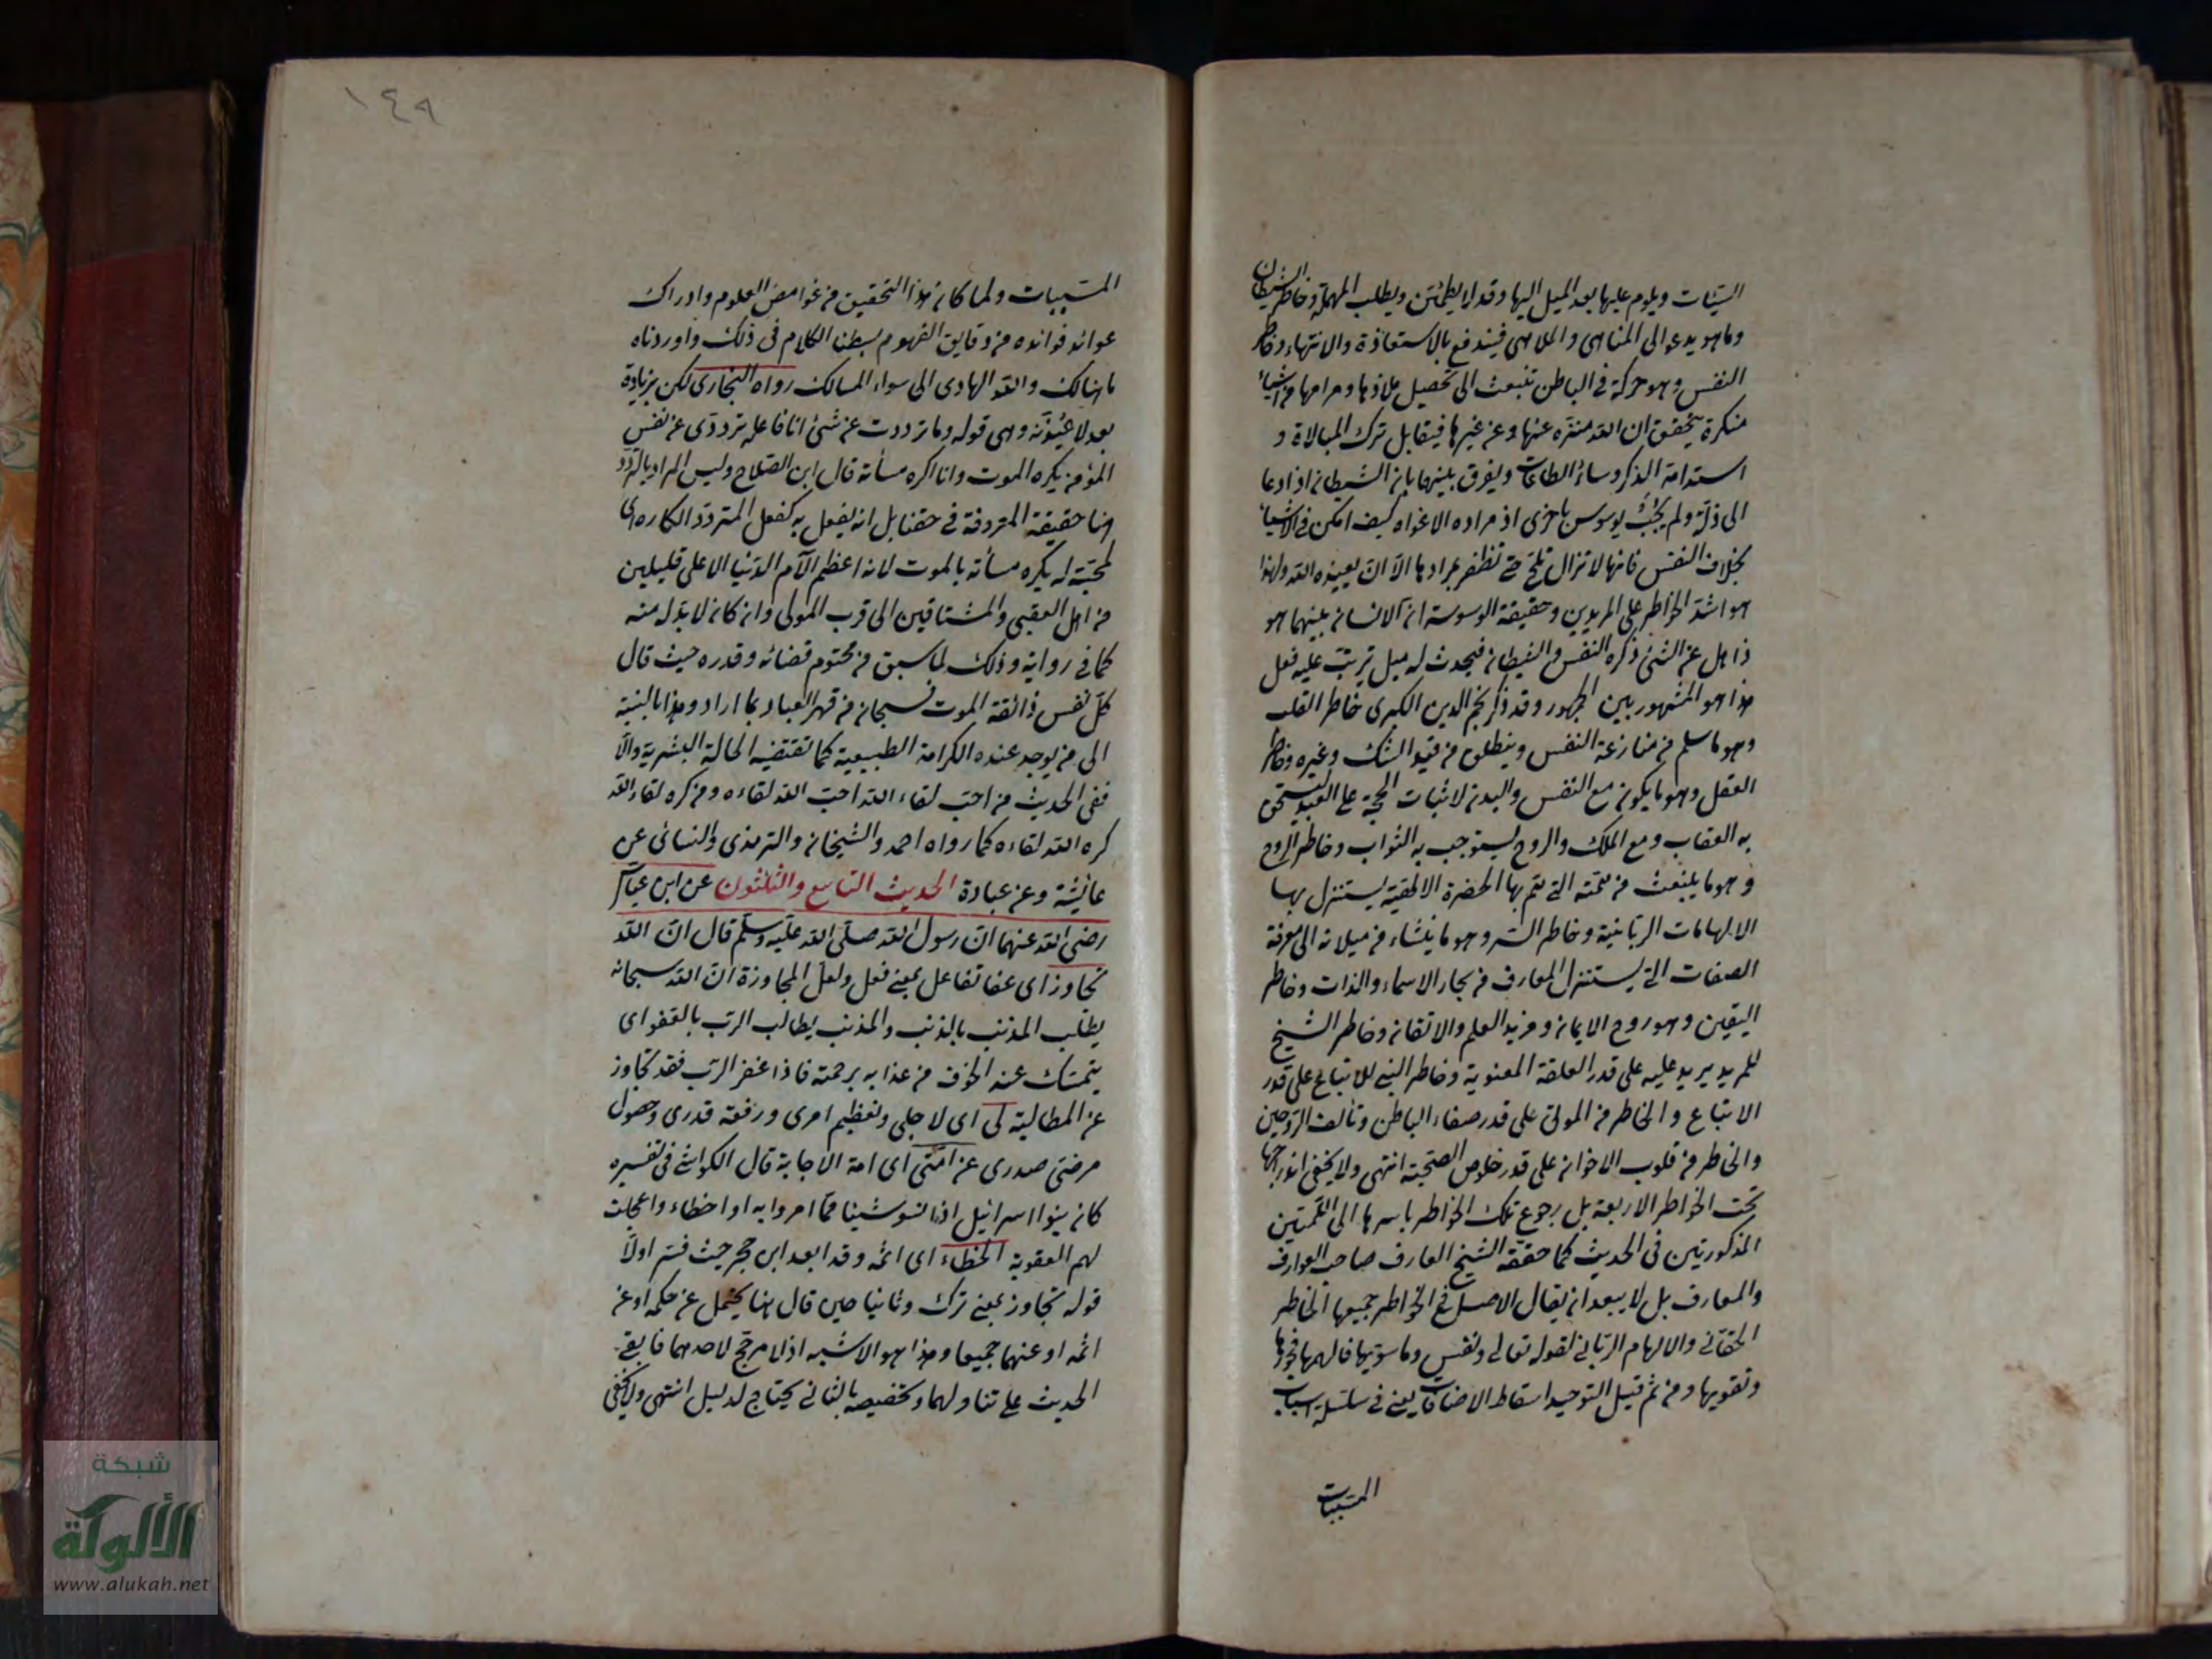 السيئات ويلوم عليها بعد الميل اليها وقد لا يطمئن ويطلب المهملة وخاطر الشيطان
وما هو يدعو الى المناهى والملاهى فيندفع بالاستعاذة والانتهاء وخاطر
النفس وهو حركة في الباطن تنبعث الى تحصيل ملاذها ومرامها من اشياء
منكرة يتحقق ان الله منزه عنها وعن غيرها فيقابل ترك المبالاة و
استدامة الذكر وسائر الطاعات ويفرق بينهما بان الشيطان اذا دعا
الى ذلة ولم يجب يوسوس باخرى اذ مراده الاغواء كيف امكن في الاشياء
بخلاف النفس فانها لا تزال تلح حتى تظفر بمرادها الا ان يعيذه الله ولهذا
هو اشد الخواطر على المريدين وحقيقة الوسوسة ان الانسان بينهما هو
ذاهل عن الشئ ذكره النفس والشيطان فيحدث له ميل تريت عليه فعل
هذا هو المشهور بين الجمهور وقد ذكر نجم الدين الكبرى خاطر القلب
وهو ما سلم من منازعة النفس وينطلق من قيد الشك وغيره وخاطر
العقل وهو ما يكون مع النفس والبدن لاثبات الحجة على العبد ليستحق
به العقاب ومع الملك والروح ليستوجب به الثواب وخاطر الروح
وهو ما ينبعث من همته التي تتم بها الحضرة الالهية يستنزل بها
الالهامات الربانية وخاطر السر وهو ما ينشاء من ميلانه الى معرفة
الصفات التي يستنزل المعارف من بحار الاسماء والذات وخاطر
اليقين وهو روح الايمان ومزيد العلم والاتقان وخاطر الشيخ
للمريد يريد عليه على قدر العلقة المعنوية وخاطر النبي للاتباع على قدر
الاتباع والخاطر من المولى على قدر صفاء الباطن وتألف الروحين
والخاطر من قلوب الاخوان على قدر خلوص الصحبة انتهى ولا يخفى اندراجها
تحت الخواطر الاربعة بل رجوع تلك الخواطر باسرها الى اللمتين
المذكورتين في الحديث كما حققه الشيخ العارف صاحب العوارف
والمعارف بل لا يبعد ان يقال الاصل في الخواطر جميعها الخاطر
الحقاني والالهام الرباني لقوله تعالى ونفس وما سويها فالهمها فجورها
وتقويها ومن ثم قيل التوحيد اسقاط الاضافات يعني في سلسلة اسباب
المسببات
١٤٩
المسببات ولما كان هذا التحقيق من غوامض العلوم وادراك
عوائد فوائده من دقايق الفهوم بسطنا الكلام في ذلك واوردناه
ما هنالك والله الهادى الى سواء المسالك رواه البخارى لكن بزيادة
بعد لاعيذنه وهى قوله وما ترددت عن شئ انا فاعله ترددى عن نفس
المؤمن يكره الموت وانا اكره مسأته قال ابن الصلاح وليس المراد بالتردد
هنا حقيقة المتردفة في حقنا بل انه يفعل به كفعل المتردد الكاره اى
لمحبته له يكره مسأته بالموت لانه اعظم الآم الدنيا الا على قليلين
من اهل العقبى والمشتاقين الى قرب المولى وان كان لا بد له منه
كما في رواية وذلك لما سبق من محتوم قضائه وقدره حيث قال
كل نفس ذائقة الموت فسبحان من قهر العباد بما اراد وهذا بالنسبة
الى من يوجد عنده الكرامة الطبيعية كما تقتضيه الحالة البشرية والا
ففى الحديث من احب لقاء الله احب الله لقاءه ومن كره لقاء الله
كره الله لقاءه كما رواه احمد والشيخان والترمذى والنسائى عن
عائشة وعن عبادة الحديث التاسع والثلثون عن ابن عباس
رضى الله عنهما ان رسول الله صلى الله عليه وسلم قال ان الله
تجاوز اى عفا تفاعل بمعنى فعل ولعل المجاوزة ان الله سبحانه
يطلب المذنب بالذنب والمذنب يطالب الرب بالعفو اى
يتمسك عند الخوف من عذابه برحمته فاذا غفر الرب فقد تجاوز
عن المطالبة لى اى لاجلى وتعظيم امرى ورفعة قدرى وحصول
مرضتى صدرى عن امتى اى امة الاجابة قال الكواشى في تفسيره
كان بنوا اسرائيل اذا نسو شيئا مما امروا به او اخطاء واعجلت
لهم العقوبة الخطاء اى اثمه وقد ابعد ابن حجر حيث فسر اولا
قوله تجاوز بمعنى ترك وثانيا حين قال هنا يحتمل عن حكمه او عن
اثمه او عنهما جميعا وهذا هو الاشبه اذ لا مرجح لاحدهما فابقى
الحديث على تناولهما وتخصيصه بالثانى يحتاج لدليل انتهى ولا يخفى
شبكة
الألوكة
www.alukah.net